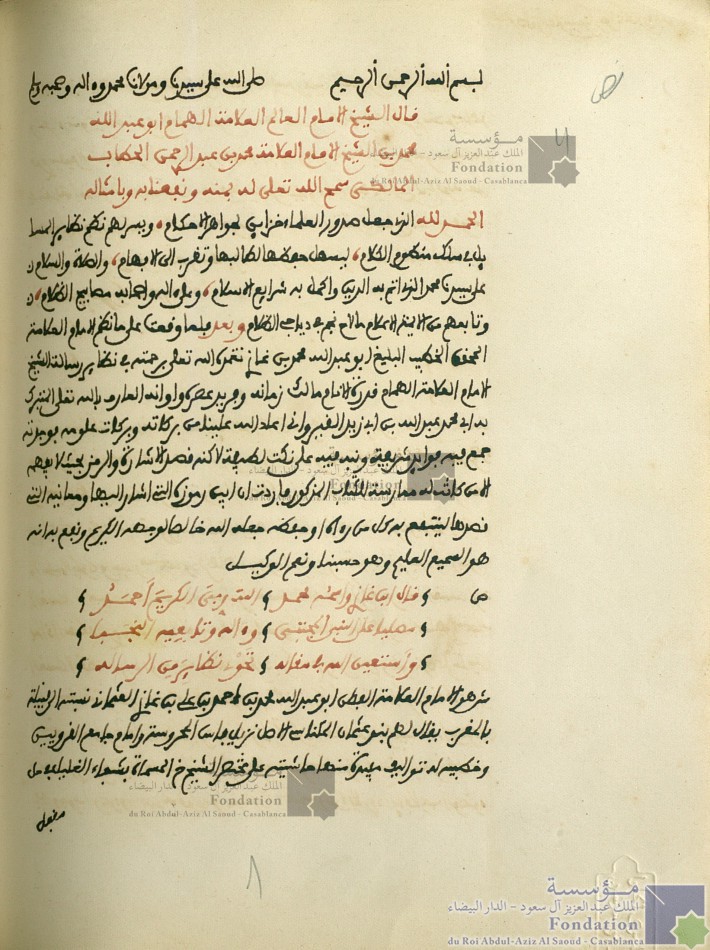 بسم الله الرحمن الرحيم صلى الله على سيدنا ومولانا محمد وءاله وصحبه وسلم
قال الشيخ الامام العالم العلامة الهمام ابو عبد الله
محمد بن الشيخ الامام العلامة محمد بن عبد الرحمن الحطاب
المالكي سمح الله تعلى له بمنه ونفعنا به وبامثاله
الحمد لله الذي جعل صدور العلماء خزاين لجواهر الاحكام ويسر لهم نظم نظاير المسا
يل في سلك منظوم الكلام ليسهل حفظها لطالبها وتقرب الى الافهام والصلاة والسلام
على سيدنا محمد الذي اتم به الدين واكمل به شرايع الاسلام وعلى اله واصحابه مصابيح الظلام
وتابعهم من الايمة الاعلام ما لاح نجم في دياجي الظلام وبعد فلما وقفت على ما نظم الامام العلامة
المحقق الخطيب البليغ ابو عبد الله محمد بن غازي تغمده الله تعلى برحمته في نظاير رسالة الشيخ
الامام العلامة الهمام قدوة الانام مالك زمانه وفريد عصره واوانه العارف بالله تعلى المتبرك
به ابي محمد عبد الله بن ابي زيد القيرواني اعاد الله علينا من بركاته وبركات علومه فوجدته
جمع فيه فوايد شريفة ونبه فيه على نكت لطيفة لاكنه قصد الاشارة والرمز بحيث لا يفهمه
الا من كانت له ممارسة للكتاب المذكور فاردت ان ابين رموزه التي اشار اليها ومعانيه التي
قصدها لينتفع به كل من رءاه او حفظه جعله الله خالصا لوجهه الكريم ونفع به انه
هو السميع العليم وهو حسبنا ونعم الوكيل
ص قال ابن غازي واسمه محمد الله ربي الكريم احمد
مصليا على النبي المجتبى وءاله وتابعيه النجبا
واستعين الله في مقاله تحوي نظاير من الرساله
ش هو الامام العلامة ابو عبد الله محمد بن احمد بن علي بن غازي العثماني نسبته الى قبيلة
بالمغرب يقال لهم بنو عثمان المكناسي الاصل نزيل فاس المحروسة وامام جامع القرويين
وخطيبه له تواليف مفيدة منها حاشيته على مختصر الشيخ خ المسماة بشفاء الغليل في حل
مقفل
مؤسسة
الملك عبد العزيز آل سعود - الدار البيضاء
Fondation
du Roi Abdul-Aziz Al Saoud - Casablanca